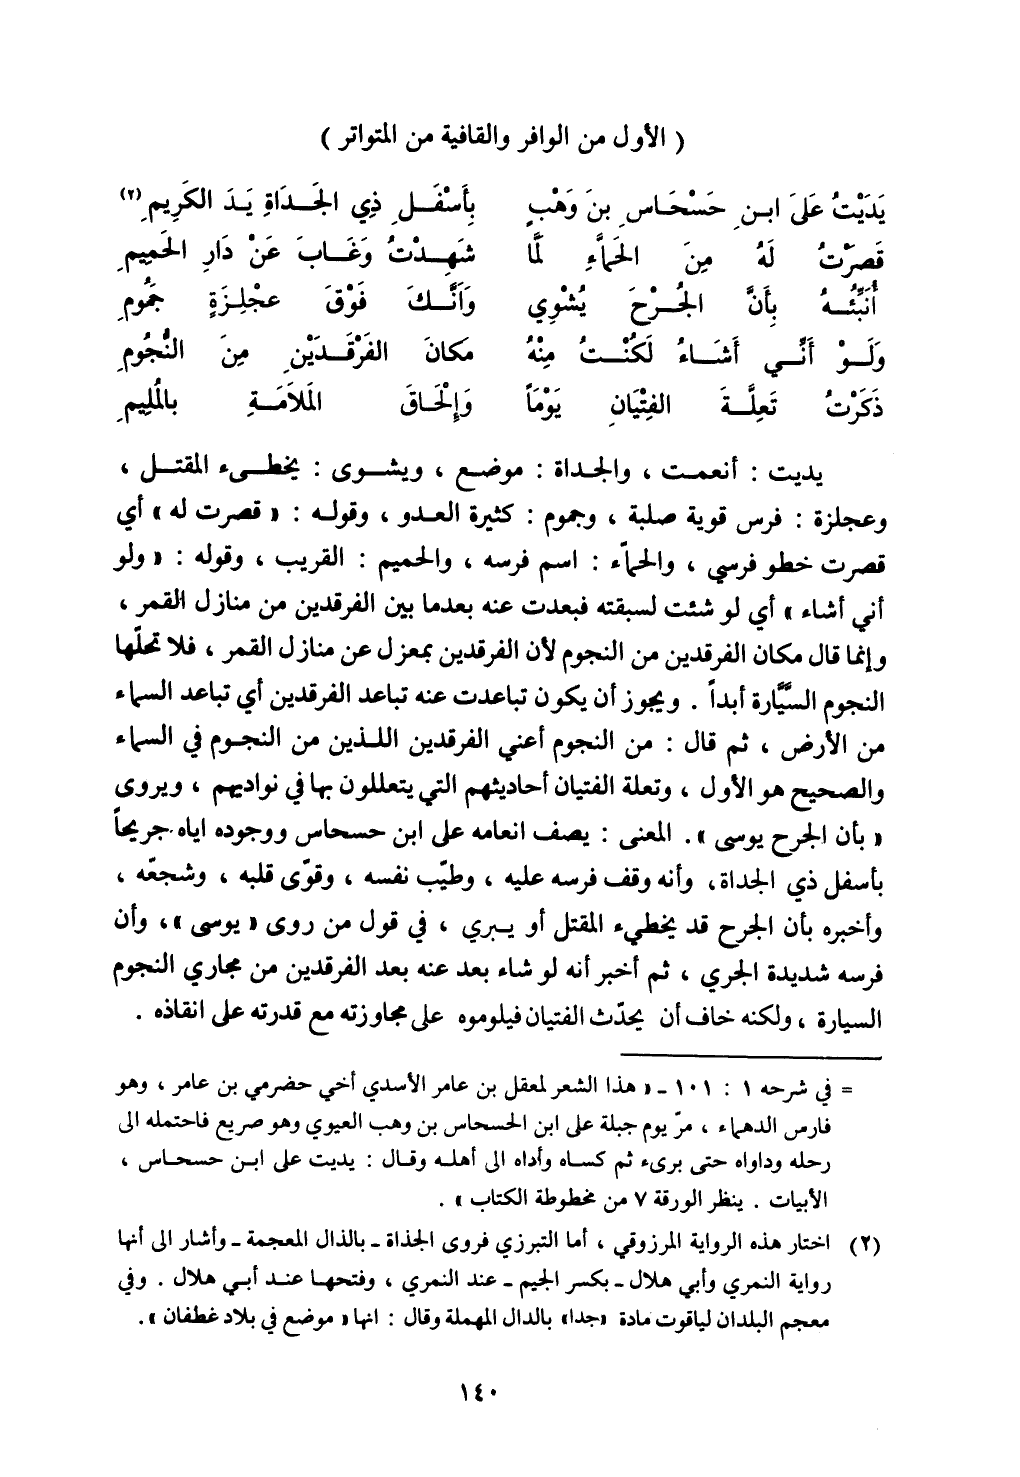 ( الأول من الوافر والقافية من المتواتر )
يَدَيْتُ عَلَىَ ابنِ حَسْحَاسِ بنَ وَهْبٍ بِأَسْفَلِ ذِي الجَدَاةِ يَدَ الكَرِيمِ (٢)
قَصَرْتُ لَهُ مِنَ الحَمَّاءِ لَمَّا شَهِدْتُ وَغَابَ عَنْ دَارِ الحَمِيمِ
أُنَبِّئُهُ بِأَنَّ الجُرْحَ يُشْوِي وَأَنَّكَ فَوْقَ عجْلِزَةٍ جَمُومِ
وَلَوْ أَنِّي أَشَاءُ لَكُنْتُ مِنْهُ مَكانَ الفَرْقَدَيْنِ مِنَ النُّجُومِ
ذَكَرْتُ تَعِلَّةَ الفِتْيَانِ يَوْمَاً وَإِلْحَاقَ المَلاَمَةِ بالمُلِيمِ
يديت : أنعمت ، والجداة : موضع ، ويشوى : يخطىء المقتل ،
وعجلزة : فرس قوية صلبة ، وجموم : كثيرة العدو ، وقوله : « قصرت له » أي
قصرت خطو فرسي ، والحمّاء : اسم فرسه ، والحميم : القريب ، وقوله : « ولو
أني أشاء » أي لو شئت لسبقته فبعدت عنه بعدما بين الفرقدين من منازل القمر ،
وإنما قال مكان الفرقدين من النجوم لأن الفرقدين بمعزل عن منازل القمر ، فلا تحلّها
النجوم السيَّارة أبداً . ويجوز أن يكون تباعدت عنه تباعد الفرقدين أي تباعد السماء
من الأرض ، ثم قال : من النجوم أعني الفرقدين اللذين من النجوم في السماء
والصحيح هو الأول ، وتعلة الفتيان أحاديثهم التي يتعللون بها في نواديهم ، ويروى
« بأن الجرح يوسى » . المعنى : يصف انعامه على ابن حسحاس ووجوده اياه جريحاً
بأسفل ذي الجداة، وأنه وقف فرسه عليه ، وطيّب نفسه ، وقوّى قلبه ، وشجعّه ،
وأخبره بأن الجرح قد يخطيء المقتل أو يبري ، في قول من روى « يوسى »، وأن
فرسه شديدة الجري ، ثم أخبر أنه لو شاء بعد عنه بعد الفرقدين من مجاري النجوم
السيارة ، ولكنه خاف أن يحدّث الفتيان فيلوموه على مجاوزته مع قدرته على انقاذه .
= في شرحه ١ : ١٠١ ـ « هذا الشعر لمعقل بن عامر الأسدي أخي حضرمي بن عامر ، وهو
فارس الدهماء ، مرّ يوم جبلة على ابن الحسحاس بن وهب العيوي وهو صريع فاحتمله الى
رحله وداواه حتى برىء ثم كساه وأداه الى أهله وقال : يديت على ابن حسحاس ،
الأبيات . ينظر الورقة ٧ من مخطوطة الكتاب » .
(٢) اختار هذه الرواية المرزوقي ، أما التبرزي فروى الجذاة ـ بالذال المعجمة ـ وأشار الى أنها
رواية النمري وأبي هلال ـ بكسر الجيم ـ عند النمري ، وفتحها عند أبي هلال . وفي
معجم البلدان لياقوت مادة «جدا» بالدال المهملة وقال : انها « موضع في بلاد غطفان » .
١٤٠